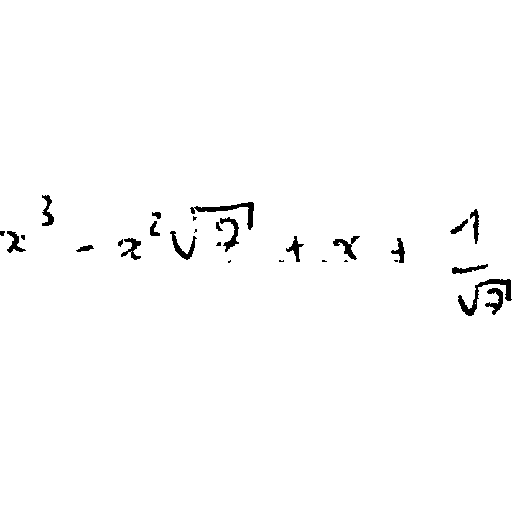 x³ - x²√7 + x + 1/√7